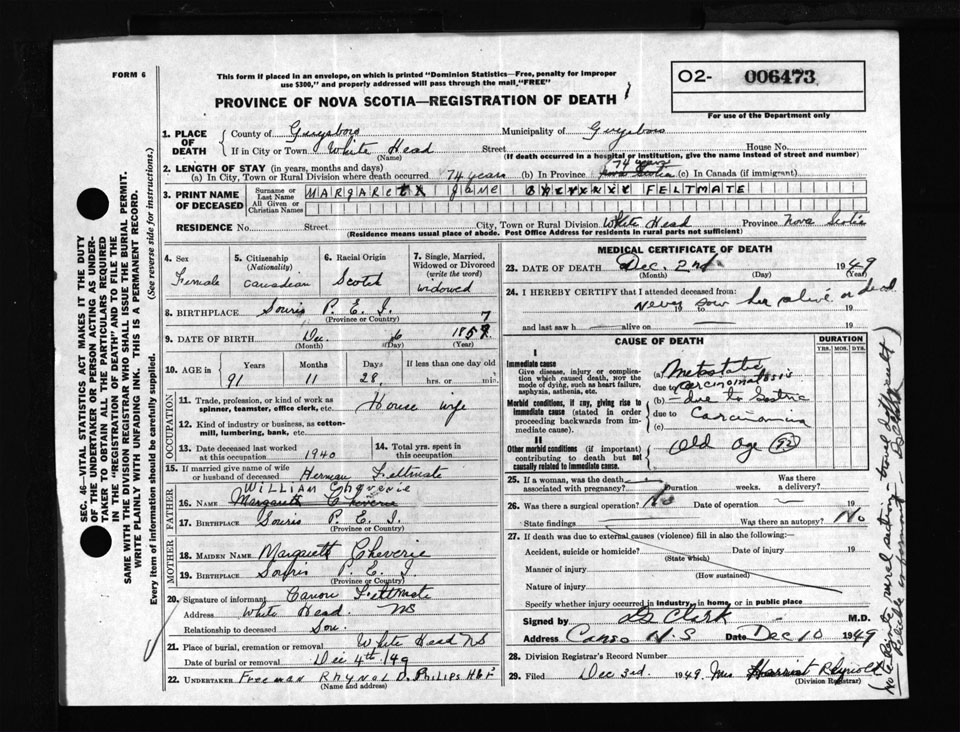 FORM 6
This form if placed in an envelope, on which is printed "Dominion Statistics—Free, penalty for improper
use $300," and properly addressed will pass through the mail "FREE"
O2- 006473
For use of the Department only
PROVINCE OF NOVA SCOTIA—REGISTRATION OF DEATH
1. PLACE OF DEATH
County of Guysboro Municipality of Guysboro
If in City or Town White Head Street House No.
(Name) (If death occurred in a hospital or institution, give the name instead of street and number)
2. LENGTH OF STAY (in years, months and days)
74 years
(a) In City, Town or Rural Division where death occurred 74 years (b) In Province Nova Scotia (c) In Canada (if immigrant)
3. PRINT NAME OF DECEASED
Surname or Last Name MARGARET Jane FELTMATE
All Given or Christian Names
RESIDENCE No. Street City, Town or Rural Division White Head Province Nova Scotia
(Residence means usual place of abode. Post Office Address for residents in rural parts not sufficient)
4. Sex Female
5. Citizenship (Nationality) Canadian
6. Racial Origin Scotch
7. Single, Married, Widowed or Divorced (write the word) widowed
8. BIRTHPLACE Souris P. E. I.
(Province or Country)
9. DATE OF BIRTH Dec 6 1857
(Month) (Day) (Year)
10. AGE in Years Months Days If less than one day old
91 11 28 hrs. or min.
OCCUPATION
11. Trade, profession, or kind of work as
spinner, teamster, office clerk, etc. House wife
12. Kind of industry or business, as cotton-
mill, lumbering, bank, etc.
13. Date deceased last worked at this occupation 1940
14. Total yrs. spent in this occupation
15. If married give name of wife
or husband of deceased Herman Feltmate
FATHER
William Cheverie
16. NAME Margarett Cheverie
17. BIRTHPLACE Souris P. E. I.
(Province or Country)
MOTHER
18. MAIDEN NAME Margarett Cheverie
19. BIRTHPLACE Souris P. E. I.
(Province or Country)
20. Signature of informant Feltmate
Address White Head. NS
Relationship to deceased Son.
21. Place of burial, cremation or removal White Head NS
Date of burial or removal Dec 4th/49
22. UNDERTAKER Freeman Rhynold Philips Hbr
(Name and address)
MEDICAL CERTIFICATE OF DEATH
23. DATE OF DEATH Dec. 2nd 1949
(Month) (Day) (Year)
24. I HEREBY CERTIFY that I attended deceased from:
Never saw her alive or dead
19 to 19
and last saw h alive on 19
CAUSE OF DEATH
DURATION
YRS. MOS. DYS.
I
Immediate cause
Give disease, injury or complica-
tion which caused death, NOT the
mode of dying, such as heart failure,
asphyxia, asthenia, etc.
Morbid conditions, if any, giving rise to
immediate cause (stated in order
proceeding backwards from im-
mediate cause).
II
Other morbid conditions (if important)
contributing to death but not
causally related to immediate cause.
(a) Metastatic
due to Carcinomatosis
(b) due to Gastric
due to Carcinoma
(c)
Old Age (92)
25. If a woman, was the death associated with pregnancy? Duration weeks. Was there a delivery?
26. Was there a surgical operation? No Date of operation 19
State findings Was there an autopsy? No
27. If death was due to external causes (violence) fill in also the following:
Accident, suicide or homicide? Date of injury 19
(State which)
Manner of injury
(How sustained)
Nature of injury
Specify whether injury occurred in industry, in home, or in public place
Signed by Clark M.D.
Address Canso N.S Date Dec 10 1949
28. Division Registrar's Record Number
29. Filed Dec 3rd. 1949 Mrs Harriet Rhynold
(Division Registrar)
SEC. 46—VITAL STATISTICS ACT MAKES IT THE DUTY
OF THE UNDERTAKER OR PERSON ACTING AS UNDER-
TAKER TO OBTAIN ALL THE PARTICULARS REQUIRED
IN THE "REGISTRATION OF DEATH" AND TO FILE THE
SAME WITH THE DIVISION REGISTRAR WHO SHALL ISSUE THE BURIAL PERMIT.
WRITE PLAINLY WITH UNFADING INK. THIS IS A PERMANENT RECORD.
Every item of information should be carefully supplied. (See reverse side for instructions.)
rural section - travel difficult
Reliable informant